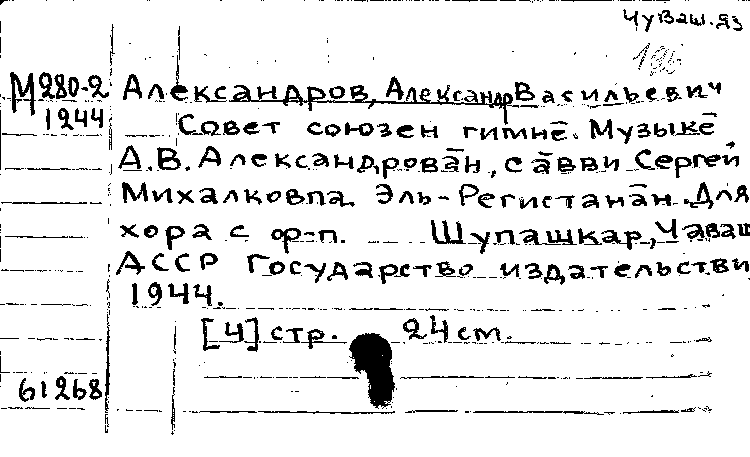 Чуваш.яз
М280-2
1244
Александров, Александр Васильевич
Совет союзен гимнĕ. Музыкĕ
А.В. Александрован, сăвви Сергей
Михалковпа Эль-Регистанăн. Для
хора с ор-п. Шупашкар, Чăваш
АССР Государство издательстви
1944.
[4] стр. 24 cm.
61268